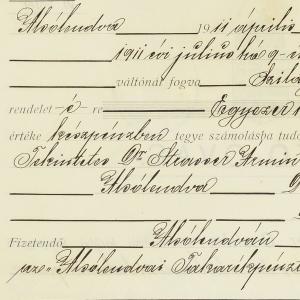 Alsólendva 1911 április
1911 évi julius hó 9-i
váltónál fogva Szilá
rendelet -é- re Egyezer
értéke készpénzben tegye számolásba tudo
Tekintetes Dr Strasser Ármin
Alsólendva
Fizetendő Alsólendván
az "Alsólendvai Takarékpénz